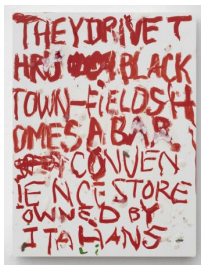 THEY DRIVE T
HRU A BLACK
TOWN–FIELDS H
OMES A BAR
CONVEN
IENCE STORE
OWNED BY
ITALIANS